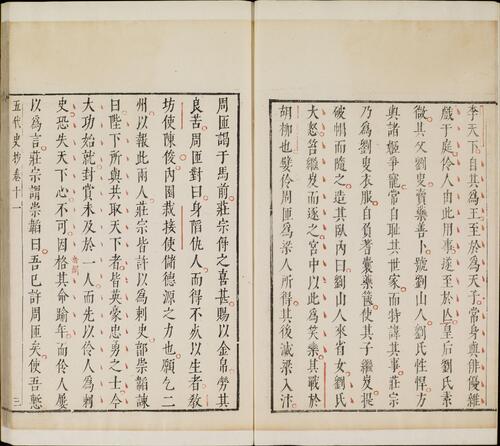 李天下自其為王至於為天子常身與俳優雜
戲于庭伶人由此用事遂至於亡皇后劉氏素
微其父劉叟賣藥善卜號劉山人劉氏性悍方
與諸姬爭寵常自耻其世家而特諱其事莊宗
乃為劉叟衣服自負蓍囊藥篋使其子繼岌提
破帽而隨之造其臥內曰劉山人來省女劉氏
大怒笞繼岌而逐之宮中以此為笑樂其戰於
胡柳也嬖伶周匝為梁人所得其後滅梁入汴
周匝謁于馬前莊宗得之喜甚賜以金帛勞其
良苦周匝對曰身陷仇人而得不死以生者教
坊使陳俊內園栽接使儲德源之力也願乞二
州以報此兩人莊宗皆許以為刺史郭崇韜諫
曰陛下所與共取天下者皆英豪忠勇之士今
大功始就封賞未及於一人而先以伶人為刺
史恐失天下心不可因格其命踰年而伶人屢
以為言莊宗謂崇韜曰吾已許周匝矣使吾慙
五代史抄卷十一 三